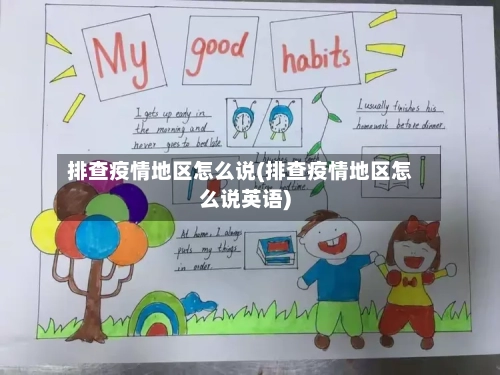 My good habits
I gets up early in
the morning and
never goes to bed late.
I usually finishes his
homework before dinner.
排查疫情地区怎么说(排查疫情地区怎
么说英语)
At home, I always
puts my things
in order.